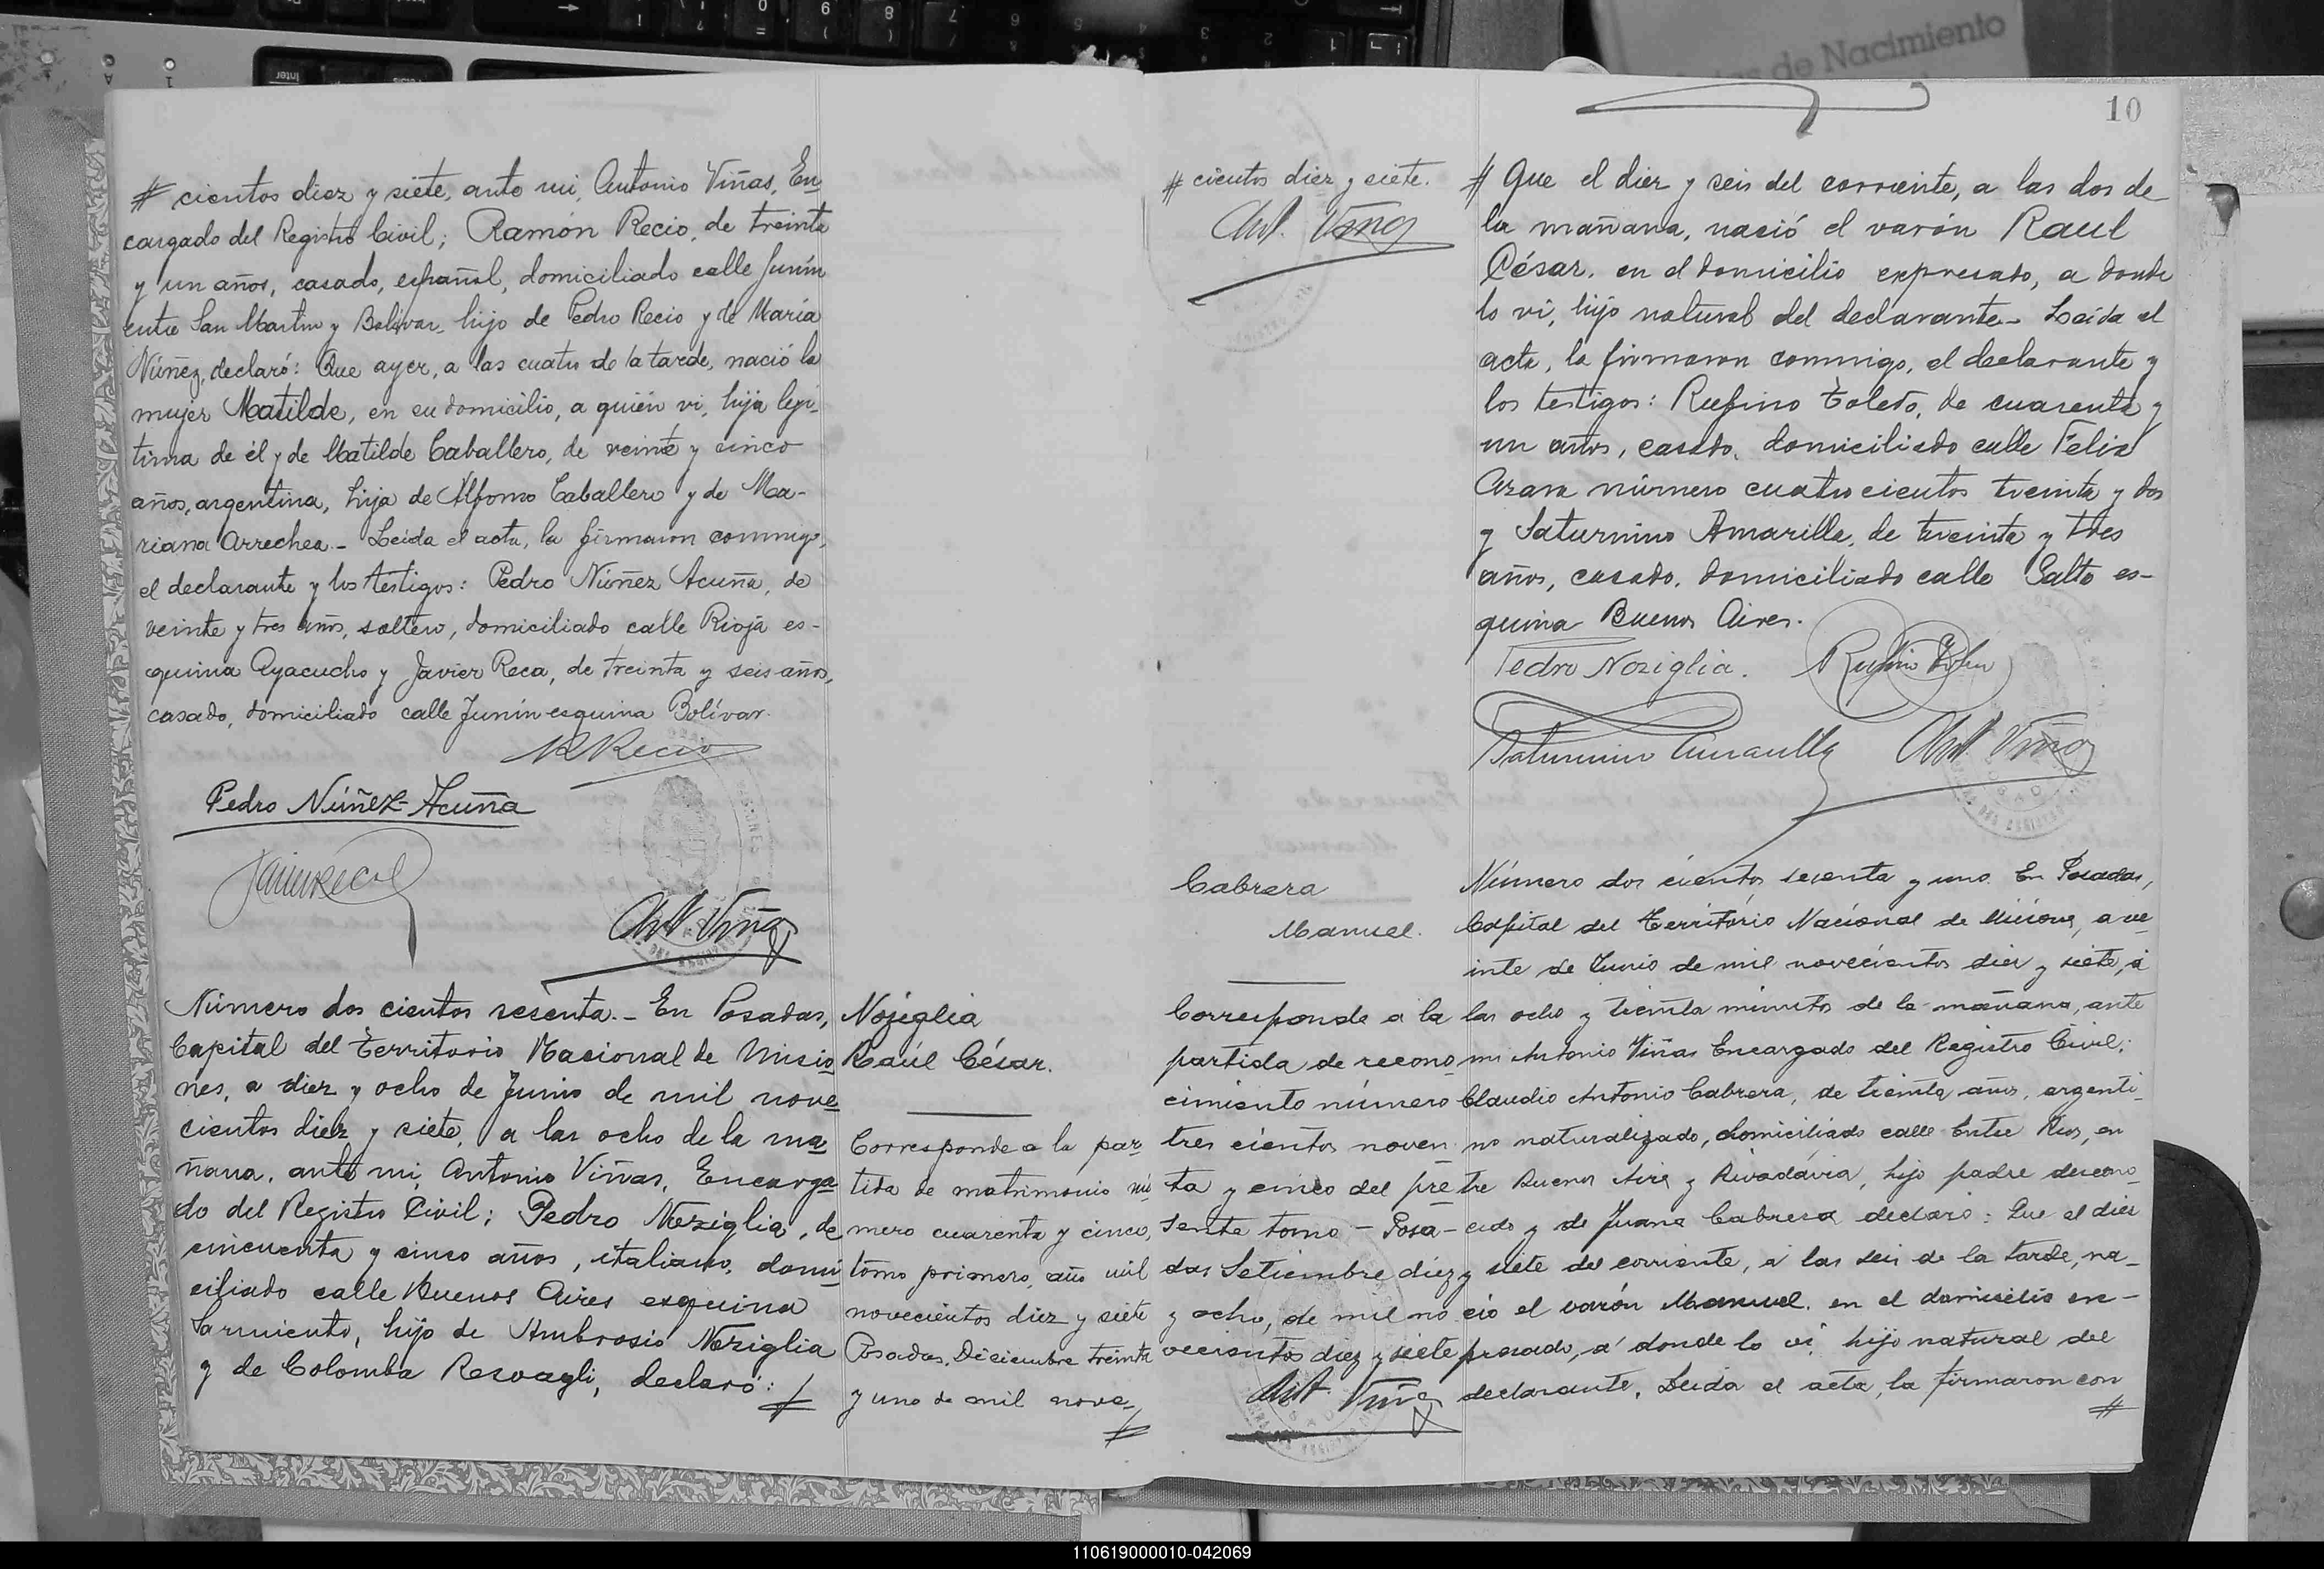 # cientos diez y siete, ante mi, Antonio Viñas, En
cargado del Registro Civil; Ramón Recio, de treinta
y un años, casado, español, domiciliado calle Junín
entre San Martin y Bolívar, hijo de Pedro Recio y de María
Núñez, declaró: Que ayer, a las cuatro de la tarde, nació la
mujer Matilde, en su domicilio, a quién vi, hija legí-
tima de él y de Matilde Caballero, de veinte y cinco
años, argentina, hija de Alfonso Caballero y de Ma-
riana Arrechea.- Leída el acta, la firmaron conmigo,
el declarante y los testigos: Pedro Núñez Acuña, de
veinte y tres años, soltero, domiciliado calle Rioja es-
quina Ayacucho y Javier Reca, de treinta y seis años,
casado, domiciliado calle Junín esquina Bolívar.
R Recio
Pedro Núñez-Acuña
Javier Reca
Ant. Viñas
Número dos cientos sesenta.- En Posadas,
Capital del Territorio Nacional de Misio
nes, a diez y ocho de Junio de mil nove
cientos diez y siete, a las ocho de la ma
ñana, ante mi, Antonio Viñas, Encarga
do del Registro Civil; Pedro Noziglia, de
cincuenta y cinco años, italiano, domi
ciliado calle Buenos Aires esquina
Sarmiento, hijo de Ambrosio Noziglia
y de Colomba Rervagli, declaró: #
Nojiglia
Raúl César.
Corresponde a la par
tida de matrimonio nú
mero cuarenta y cinco,
tomo primero, año mil
novecientos diez y siete
Posadas, Diciembre treinta
y uno de mil nove-
#
10
# cientos diez y siete.
Ant. Viñas
# Que el diez y seis del corriente, a las dos de
la mañana, nació el varón Raul
César, en el domicilio expresado, a donde
lo vi, hijo natural del declarante.- Leída el
acta, la firmaron conmigo, el declarante y
los testigos: Rufino Toledo, de cuarenta y
un años, casado, domiciliado calle Felix
Azara número cuatrocientos treinta y dos
y Saturnino Amarilla, de treinta y tres
años, casado, domiciliado calle Salta es-
quina Buenos Aires.
Pedro Noziglia. Rufino Toledo
Saturnino Amarilla Ant. Viñas
Cabrera
Manuel.
Corresponde a la
partida de recono-
cimiento número
tres cientos noven
ta y cinco del pre
sente tomo - Posa-
das Setiembre diez
y ocho, de mil no
vecientos diez y siete
Ant. Viñas
Número dos cientos sesenta y uno. En Posadas,
Capital del Território Nacional de Misiones, a ve
inte de Junio de mil novecientos diez y siete, á
las ocho y treinta minutos de la mañana, ante
mi Antonio Viñas Encargado del Registro Civil;
Claudio Antonio Cabrera, de treinta años, argenti-
no naturalizado, domiciliado calle Entre Rios, en
tre Buenos Aires y Rivadávia, hijo padre descono-
cido y de Juana Cabrera declaró: Que el diez
y siete del corriente, á las seis de la tarde, na-
ció el varón Manuel, en el domicilio ex-
presado, á donde lo vi, hijo natural del
declarante. Leida el acta, la firmaron con
#
de Nacimiento
110619000010-042069